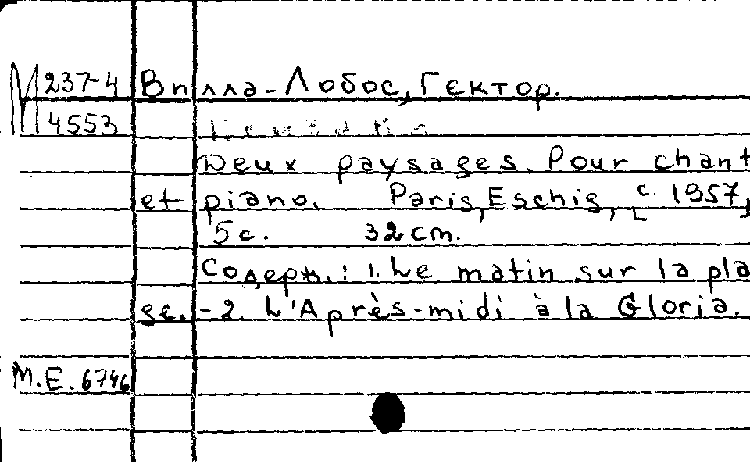 М 237-4 Вилла-Лобос, Гектор.
4553
Deux paysages. Pour chant
et piano. Paris, Eschig, c 1957,
5с. 32 cm.
Содерж.: 1. Le matin sur la pla
ge. - 2. L'Après-midi à la Gloria.
M.E. 6746